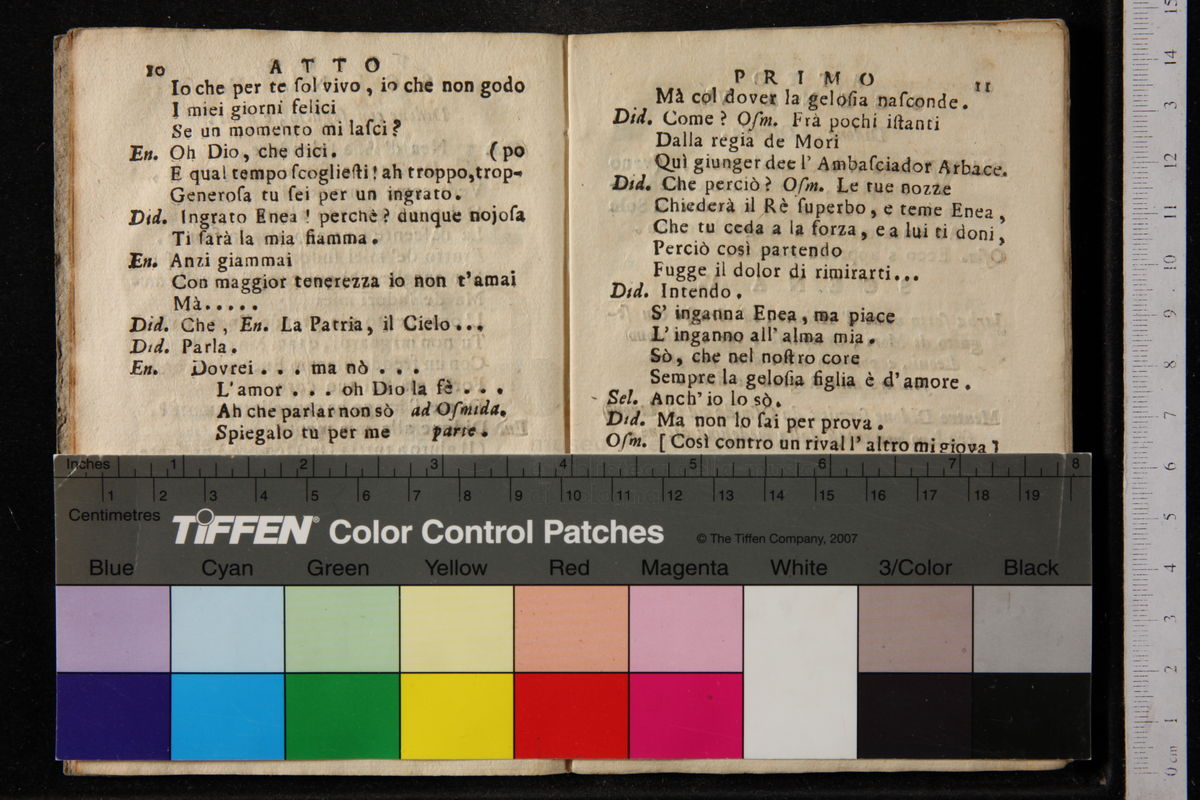 10 ATTO
Io che per te ſol vivo, io che non godo
I miei giorni felici
Se un momento mi laſci?
En. Oh Dio, che dici. (po
E qual tempo ſcogliesti! ah troppo,trop-
Generoſa tu ſei per un ingrato.
Did. Ingrato Enea! perchè? dunque nojoſa
Ti ſarà la mia fiamma.
En. Anzi giammai
Con maggior tenerezza io non t'amai
Mà.....
Did. Che, En. La Patria, il Cielo...
Did. Parla.
En. Dovrei... ma nò...
L'amor... oh Dio la fè....
Ah che parlar non sò ad Oſmida.
Spiegalo tu per me parte.
PRIMO 11
Mà col dover la geloſia naſconde.
Did. Come? Oſm. Frà pochi iſtanti
Dalla regia de Mori
Quì giunger dee l'Ambaſciador Arbace.
Did. Che perciò? Oſm. Le tue nozze
Chiederà il Rè ſuperbo, e teme Enea,
Che tu ceda a la forza, e a lui ti doni,
Perciò così partendo
Fugge il dolor di rimirarti...
Did. Intendo.
S' inganna Enea, ma piace
L'inganno all' alma mia.
Sò, che nel noſtro core
Sempre la geloſia figlia è d'amore.
Sel. Anch' io lo sò.
Did. Ma non lo ſai per prova.
Oſm. [Così contro un rival l'altro mi giova]
Inches 1 2 3 4 5 6 7 8
Centimetres 1 2 3 4 5 6 7 8 9 10 11 12 13 14 15 16 17 18 19
TIFFEN® Color Control Patches © The Tiffen Company, 2007
Blue Cyan Green Yellow Red Magenta White 3/Color Black
0 cm 1 2 3 4 5 6 7 8 9 10 11 12 3 14 15